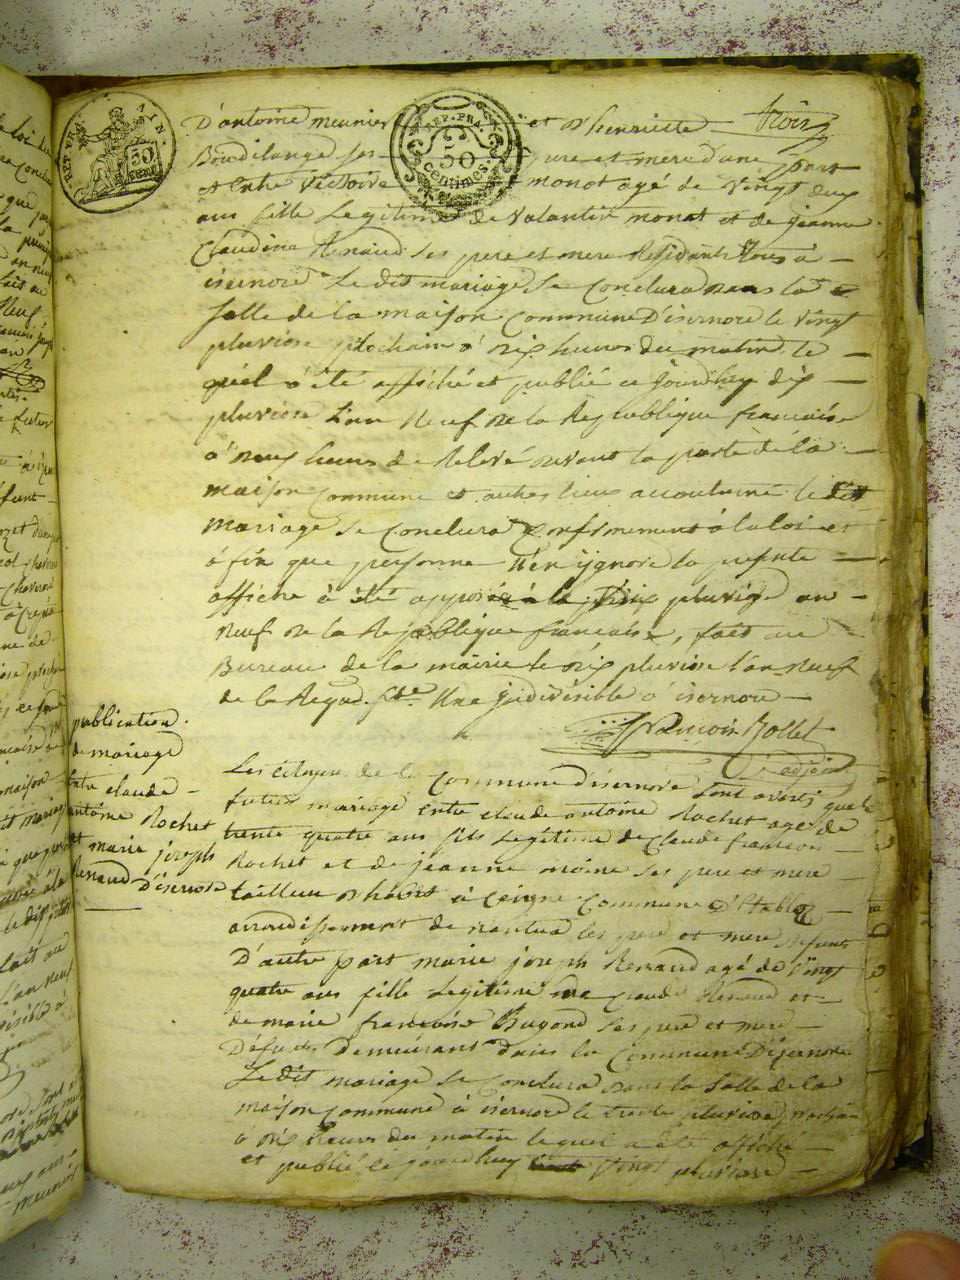 D'antoine meunier et D'henriette trois
Boudilange ses pere et mere d'une part
et Entre Victoire monot agé de Vingt deux
ans fille Legitime de Valantin monat et de jeanne
Claudina Renaud ses pere et mere Residants tous à
isernore Le dit mariage Se Conclura dans la
Salle de la maison Commune D'isernore le Vingt
pluviose prochain à dix heures du matin le
quel à été affiché et publié ce jourdhuy dix
pluviose L'an Neuf de la Republique francaise
à heures de Relevé devant la porte de la
maison Commune et autres lieux accoutumé le dit
mariage Se Conclura Conformement à la loi et
à fin que personne N'en ygnore la presente
affiche à été apposée le dix pluviose an
Neuf de la Republique francaise, fait au
Bureau de la mairie le dix pluviose l'an Neuf
de la Repub. Une indivisible à isernore
François Rollet
adjoint
publication
de mariage
Entre claude
antoine Rochet
et marie joseph
Renaud D'isernore
Les citoyens de la Commune D'isernore sont avertis que le
futur mariage Entre claude antoine Rochet age de
trente quatre ans fils Legitime de Claude francois
Rochet et de jeanne moine ses pere et mere
tailleur D'habit à Ceigne Commune D'Etable
arrondissement de nantua les pere et mere Defunts
D'autre part marie joseph Renaud agé de Vingt
quatre ans fille Legitime de Claude Renaud et
de marie francoise Bugond ses pere et mere
Defunts Demeurant dans la Commune D'isernore
Le dit mariage Se Conclura dans la Salle de la
maison commune à isernore le trente pluviose prochain
à dix heures du matin lequel a été affiché
et publié ce jourdhuy Vingt pluviose
REP. FRA.
50
centimes.